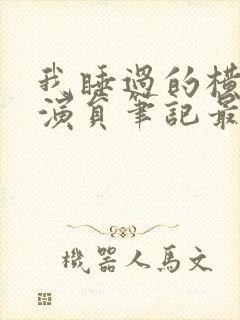 我睡過的橫
演員筆記最
機器人馬文